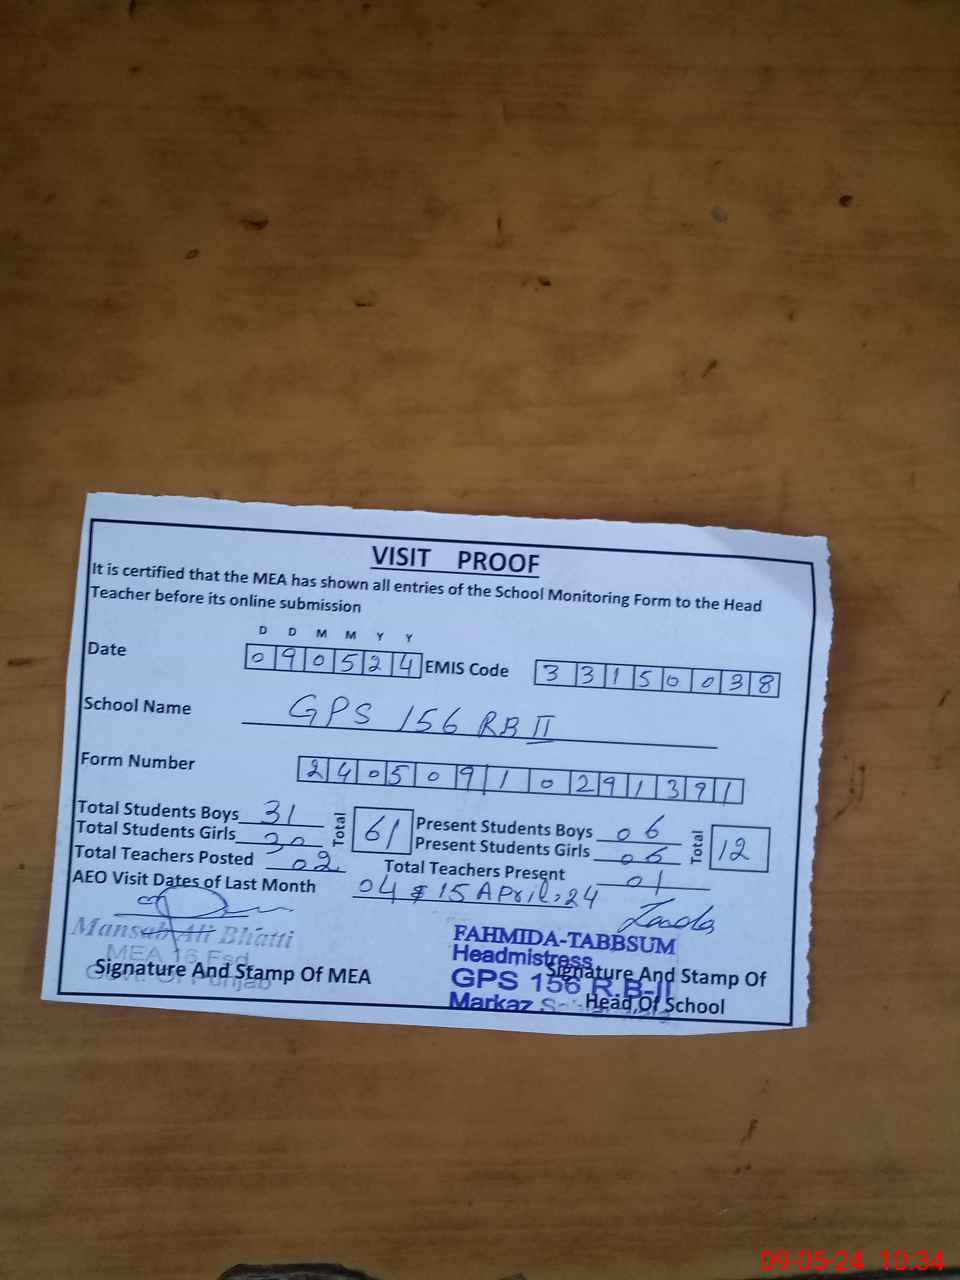 VISIT PROOF
It is certified that the MEA has shown all entries of the School Monitoring Form to the Head
Teacher before its online submission
D D M M Y Y
Date 090524 EMIS Code 33150038
School Name GPS 156 RB II
Form Number 24050910291391
Total Students Boys 31 Total 61 Present Students Boys 06 Total 12
Total Students Girls 30 Present Students Girls 06
Total Teachers Posted 02 Total Teachers Present 01
AEO Visit Dates of Last Month 04 & 15 April, 24
Mansab Ali Bhatti
MEA 16 Fsd
Govt. Of Punjab
Signature And Stamp Of MEA
FAHMIDA-TABBSUM
Headmistress
GPS 156 R.B-II
Markaz
Signature And Stamp Of
Head Of School
09-05-24 10:34